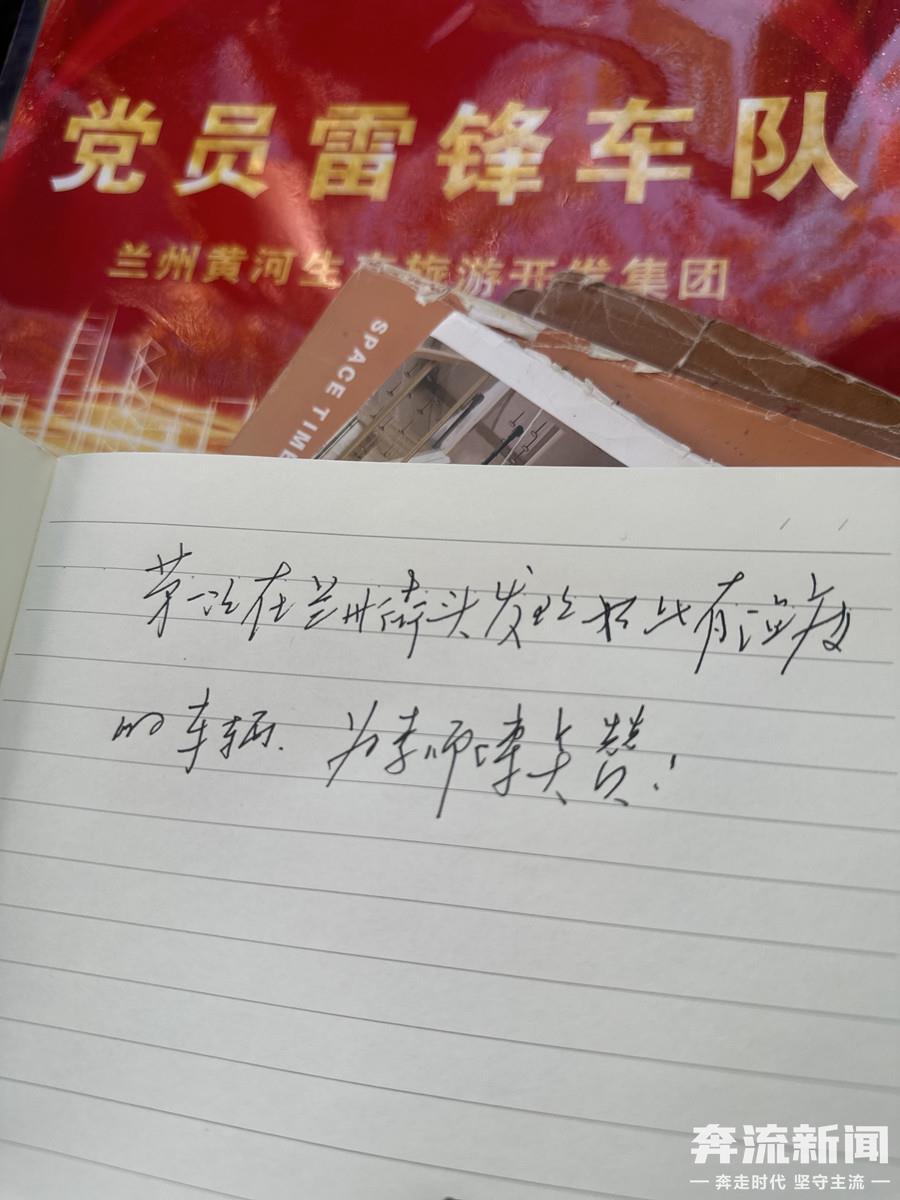 党员雷锋车队
兰州黄河生态旅游开发集团
SPACE TIME
第一次在兰州街头发现如此有温度
的车辆. 为李师傅点赞!
奔流新闻
奔走时代 坚守主流